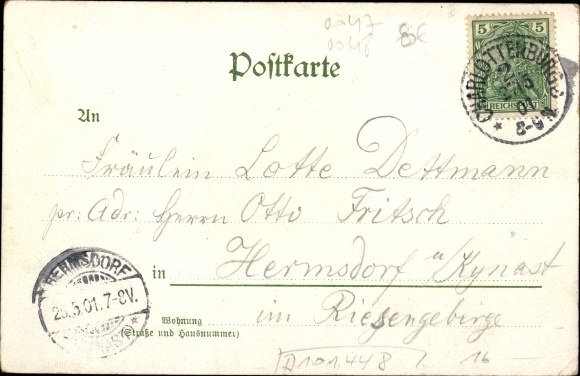 8€
5 5
REICHSPOST
CHARLOTTENBURG 2
8-9 N
Postkarte
An
Fräulein Lotte Dettmann
pr. Adr: Herrn Otto Fritsch
in Hermsdorf u/Kynast
im Riesengebirge
HERMSDORF
25.5.01.7-8V.
Wohnung
(Straße und Hausnummer)
A101.448
16 -